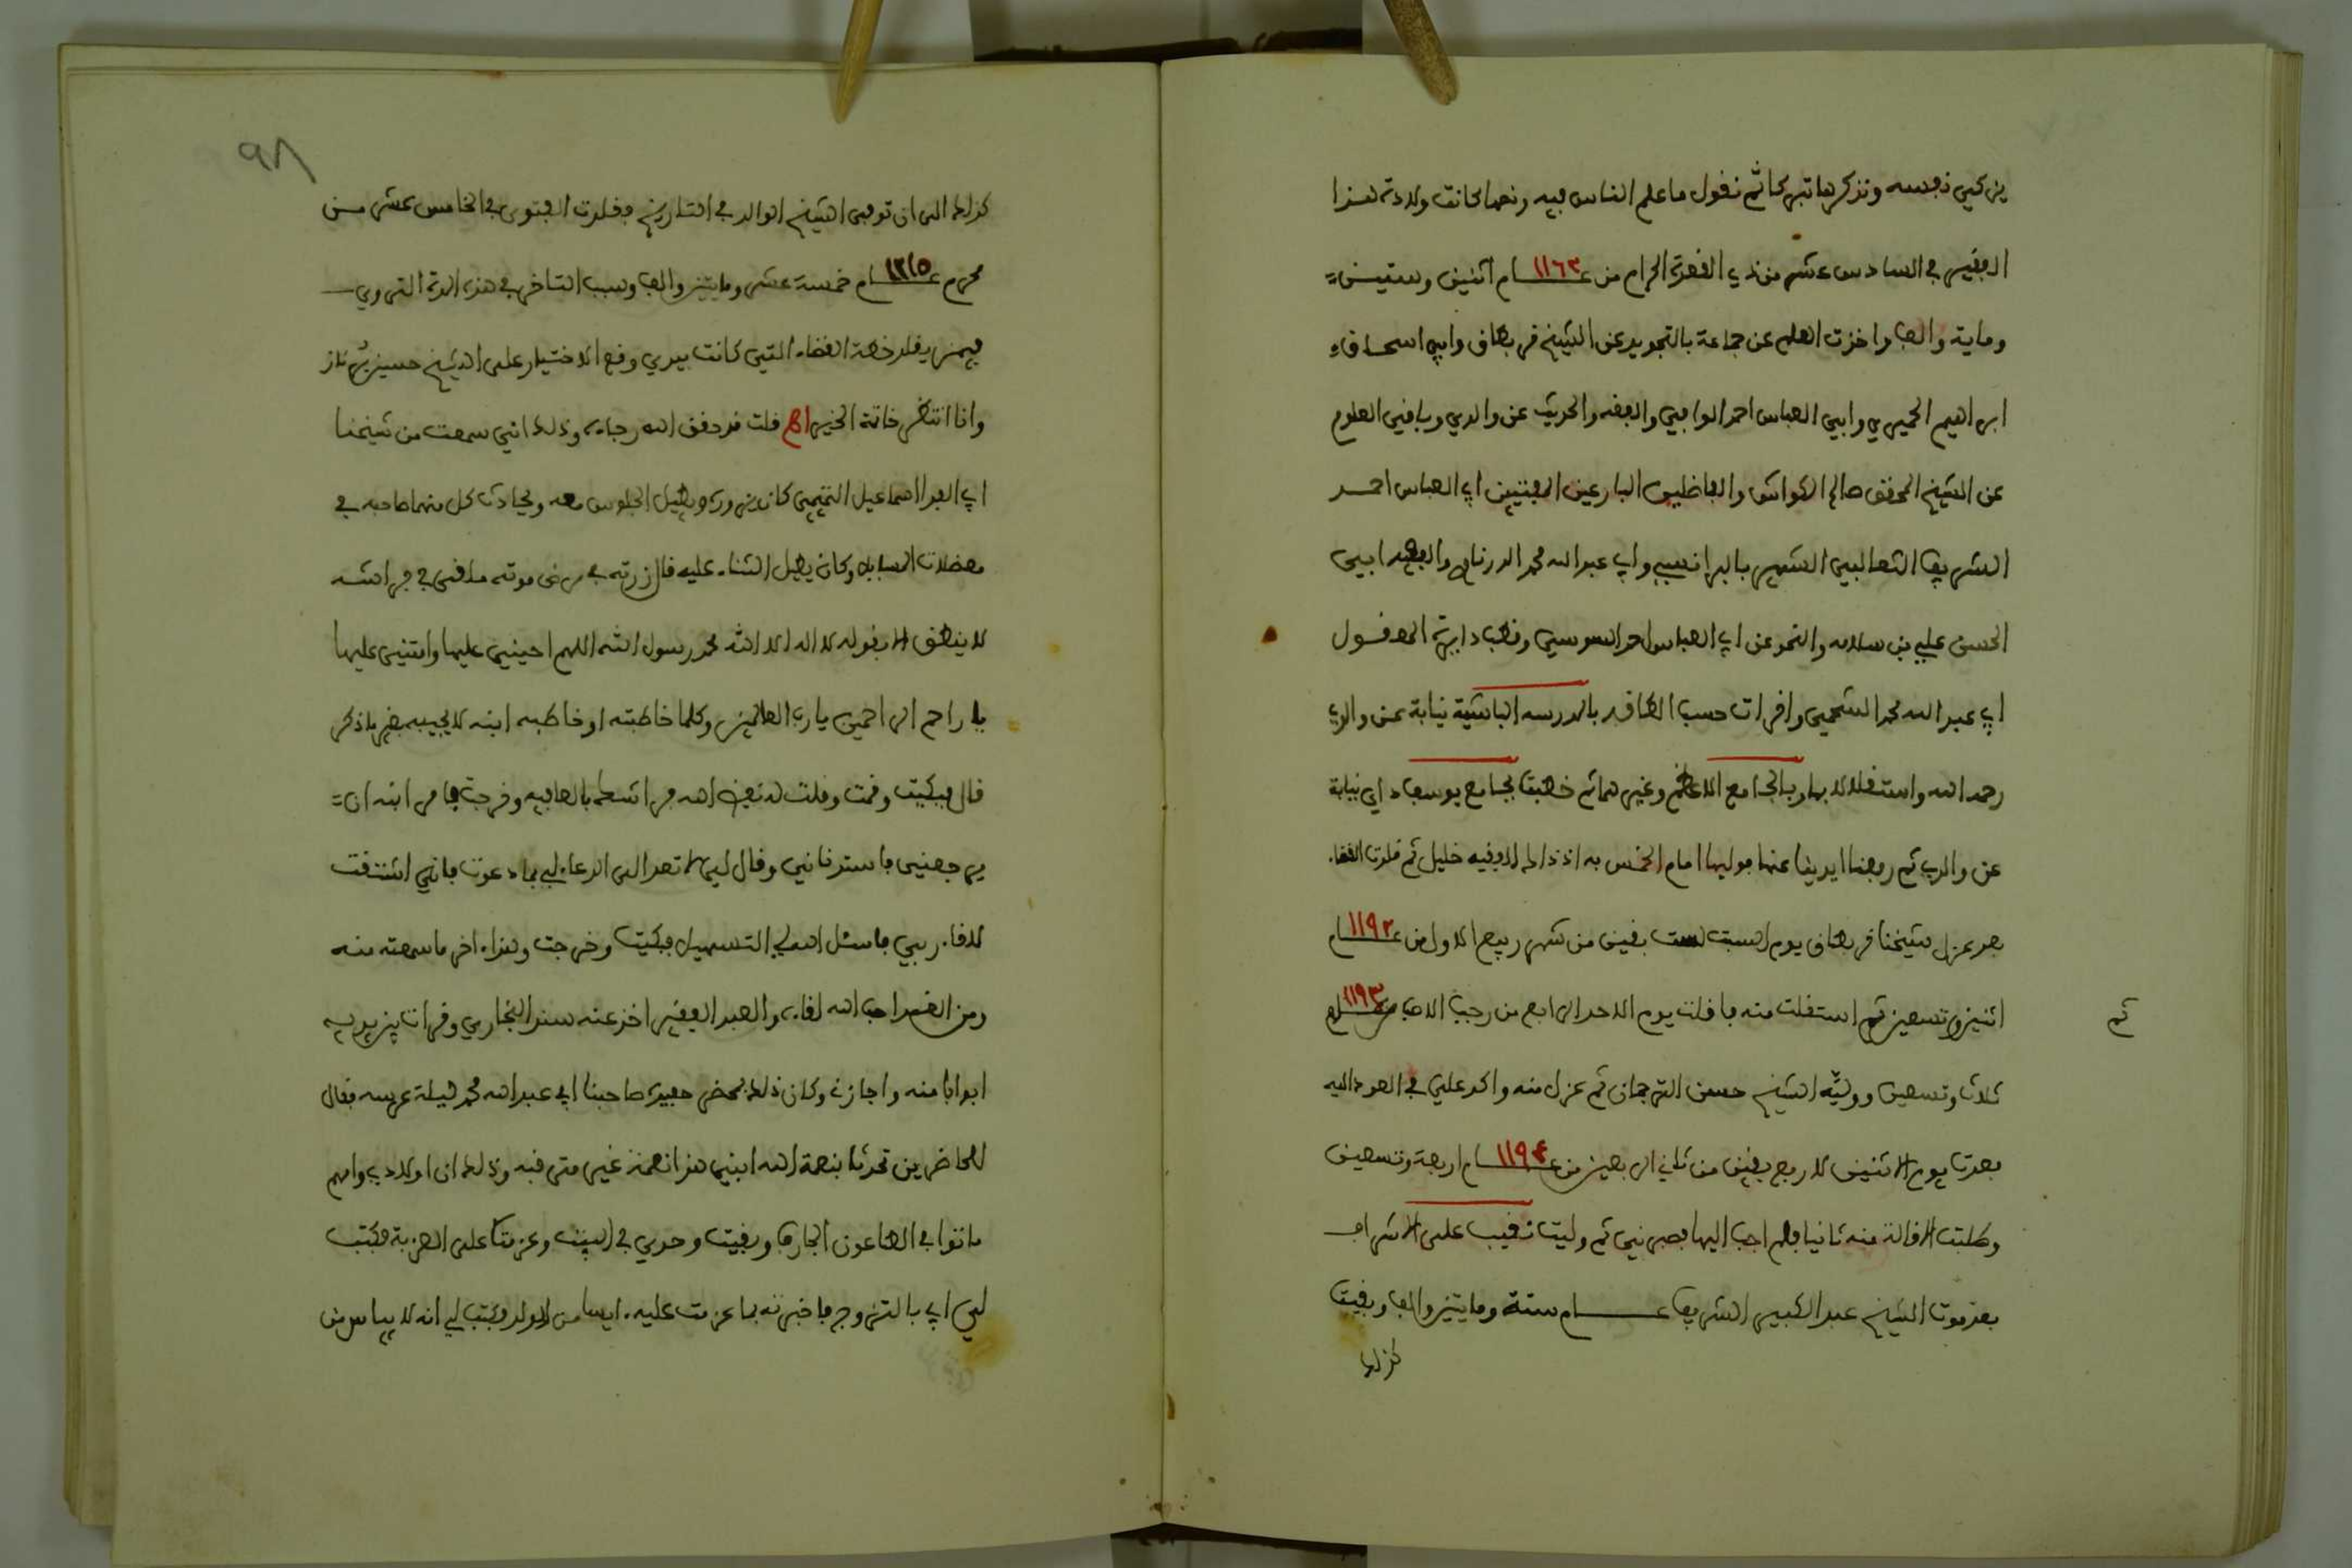 يزكي نفسه ونذكرها تبركا ثم نقول ما علم الناس فيه ونصها كانت ولادة هذا
الفقير في السادس عشر من ذي القعدة الحرام من عام ١١٦٢ اثنين وستين
وماية والف واخذت العلم عن جماعة بالتجويد عن الشيخ قر بطاق وابي اسحاق
ابراهيم الحميري وابي العباس احمد الوافي والفقه والحديث عن والدي وباقي العلوم
عن الشيخ المحقق صالح الكواش والفاضلين البارعين المفتيين ابي العباس احمد
الشريف الثعالبي الشهير بالبرانسي وابي عبد الله محمد الدرناوي والفقيه ابي
الحسن علي بن سلامه والنحو عن ابي العباس احمد السوسي وقطب دايرة المعقول
ابي عبد الله محمد الشحمي واقرات حسب الطاقه بالمدرسه الباشية نيابة عن والدي
رحمه الله واستقلالا بها وبالجامع الاعظم وغيرهما ثم خطبت بجامع يوسف داي نيابة
عن والدي ثم رفضنا ايدينا عنها فوليها امام الخمس به اذ ذاك الفقيه خليل ثم قلدت القضاء
بعد عزل شيخنا قر بطاق يوم السبت لست بقين من شهر ربيع الاول من عام ١١٩٢
اثنين وتسعين ثم استقلت منه فاقلت يوم الاحد الرابع من رجب الاصب من عام ١١٩٣
ثم
ثلاث وتسعين ووليه الشيخ حسن الترجمان ثم عزل منه واكد علي في العود اليه
فعدت يوم الاثنين لاربع بقين من ثاني الربيعين من عام ١١٩٤ اربعة وتسعين
وطلبت الاقالة منه ثانيا فلم اجب اليها فصبرني ثم وليت نقيب على الاشراف
بعد موت الشيخ عبد الكبير الشريف عام ستة ومايتين والف وبقيت
كذلك
٩٨
كذلك الى ان توفي الشيخ الوالد في التاريخ فقلدت الفتوى في الخامس عشر من
محرم عام ١٢١٥ خمسة عشر ومايتين والف وسبب التاخر في هذه المدة التروي
فيمن يقلد خطة القضاء التي كانت بيدي وقع الاختيار على الشيخ حسين برناز
وانا انتظر خاتمة الخير اهـ قلت قد حقق الله رجاءه وذلك اني سمعت من شيخنا
ابي الفداء اسماعيل التميمي كان يزوره ويطيل الجلوس معه ويحادث كل منهما صاحبه في
معضلات المسايل وكان يطيل الثناء عليه قال زرته في مرض موته ملقى في فراشه
لا ينطق الا بقوله لا اله الا الله محمد رسول الله اللهم احيني عليها وامتني عليها
يا راحم الراحمين يا رب العالمين وكلما خاطبته او خاطبه ابنه لا يجيبه بغير ما ذكر
قال فبكيت وقمت وقلت له نعيذ الله فراشك بالعافيه وخرجت فامر ابنه ان
يرجعني فاستدناني وقال لي لا تعد الى الدعاء لي بما دعوت فاني اشتقت
للقاء ربي فاسئل الله لي التسهيل فبكيت وخرجت وهذا ءاخر ما سمعته منه
ومن احب لقاء الله احب الله لقاءه والعبد الفقير اخذ عنه سند البخاري وقرات بين يديه
ابوابا منه واجازني وكان ذلك بمحضر حفيده صاحبنا ابي عبد الله محمد ليلة عرسه فقال
للحاضرين تحدثا بنعمة الله ابني هذا نعمة غير مترقبه وذلك ان اولادي وامهم
ماتوا في الطاعون الجارف وبقيت وحدي في البيت وعزمت على العزبة فكتب
لي ابي بالتزوج فاخبرته بما عزمت عليه ايسا من الولد وكتب لي انه لا يياس من